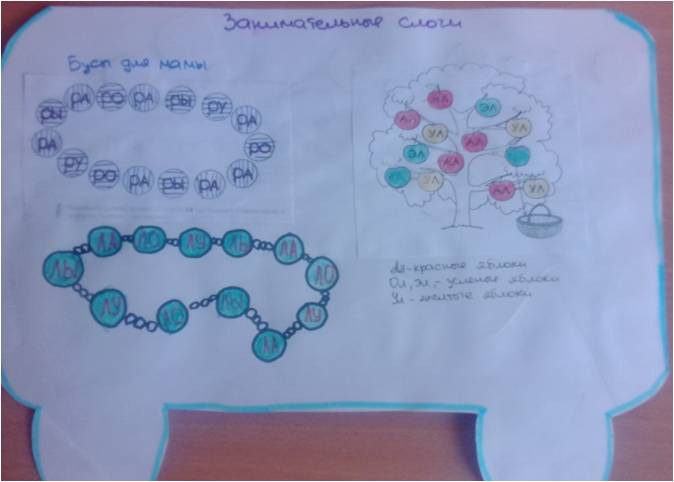 Занимательные слоги
Бусы для мамы
РЫ РА РО РА РЫ РУ РА
РА РО
РУ РО РА РЫ РА РА
АЛ ЭЛ
АЛ УЛ УЛ
АЛ
ЭЛ АЛ
УЛ АЛ УЛ
ЛЫ ЛА ЛО ЛУ ЛЫ ЛА ЛО
ЛУ ЛЫ ЛУ
ЛА
Ал-красные яблоки
Ол, эл, - зеленые яблоки
Ул - желтые яблоки